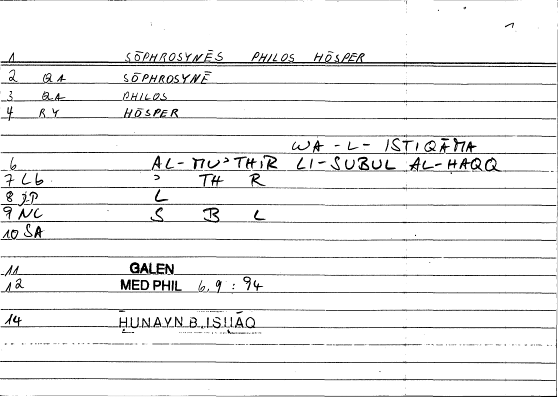 1
1 SŌPHROSYNĒS PHILOS HŌSPER
2 QA SŌPHROSYNĒ
3 QA PHILOS
4 RY HŌSPER
WA-L-ISTIQĀMA
6 AL-MUʾTHIR LI-SUBUL AL-HAQQ
7 Lb ʾ TH R
8 JP L
9 NC S B L
10 SA
11 GALEN
12 MED PHIL 6,9 : 94
14 ḤUNAYN B. ISḤĀQ